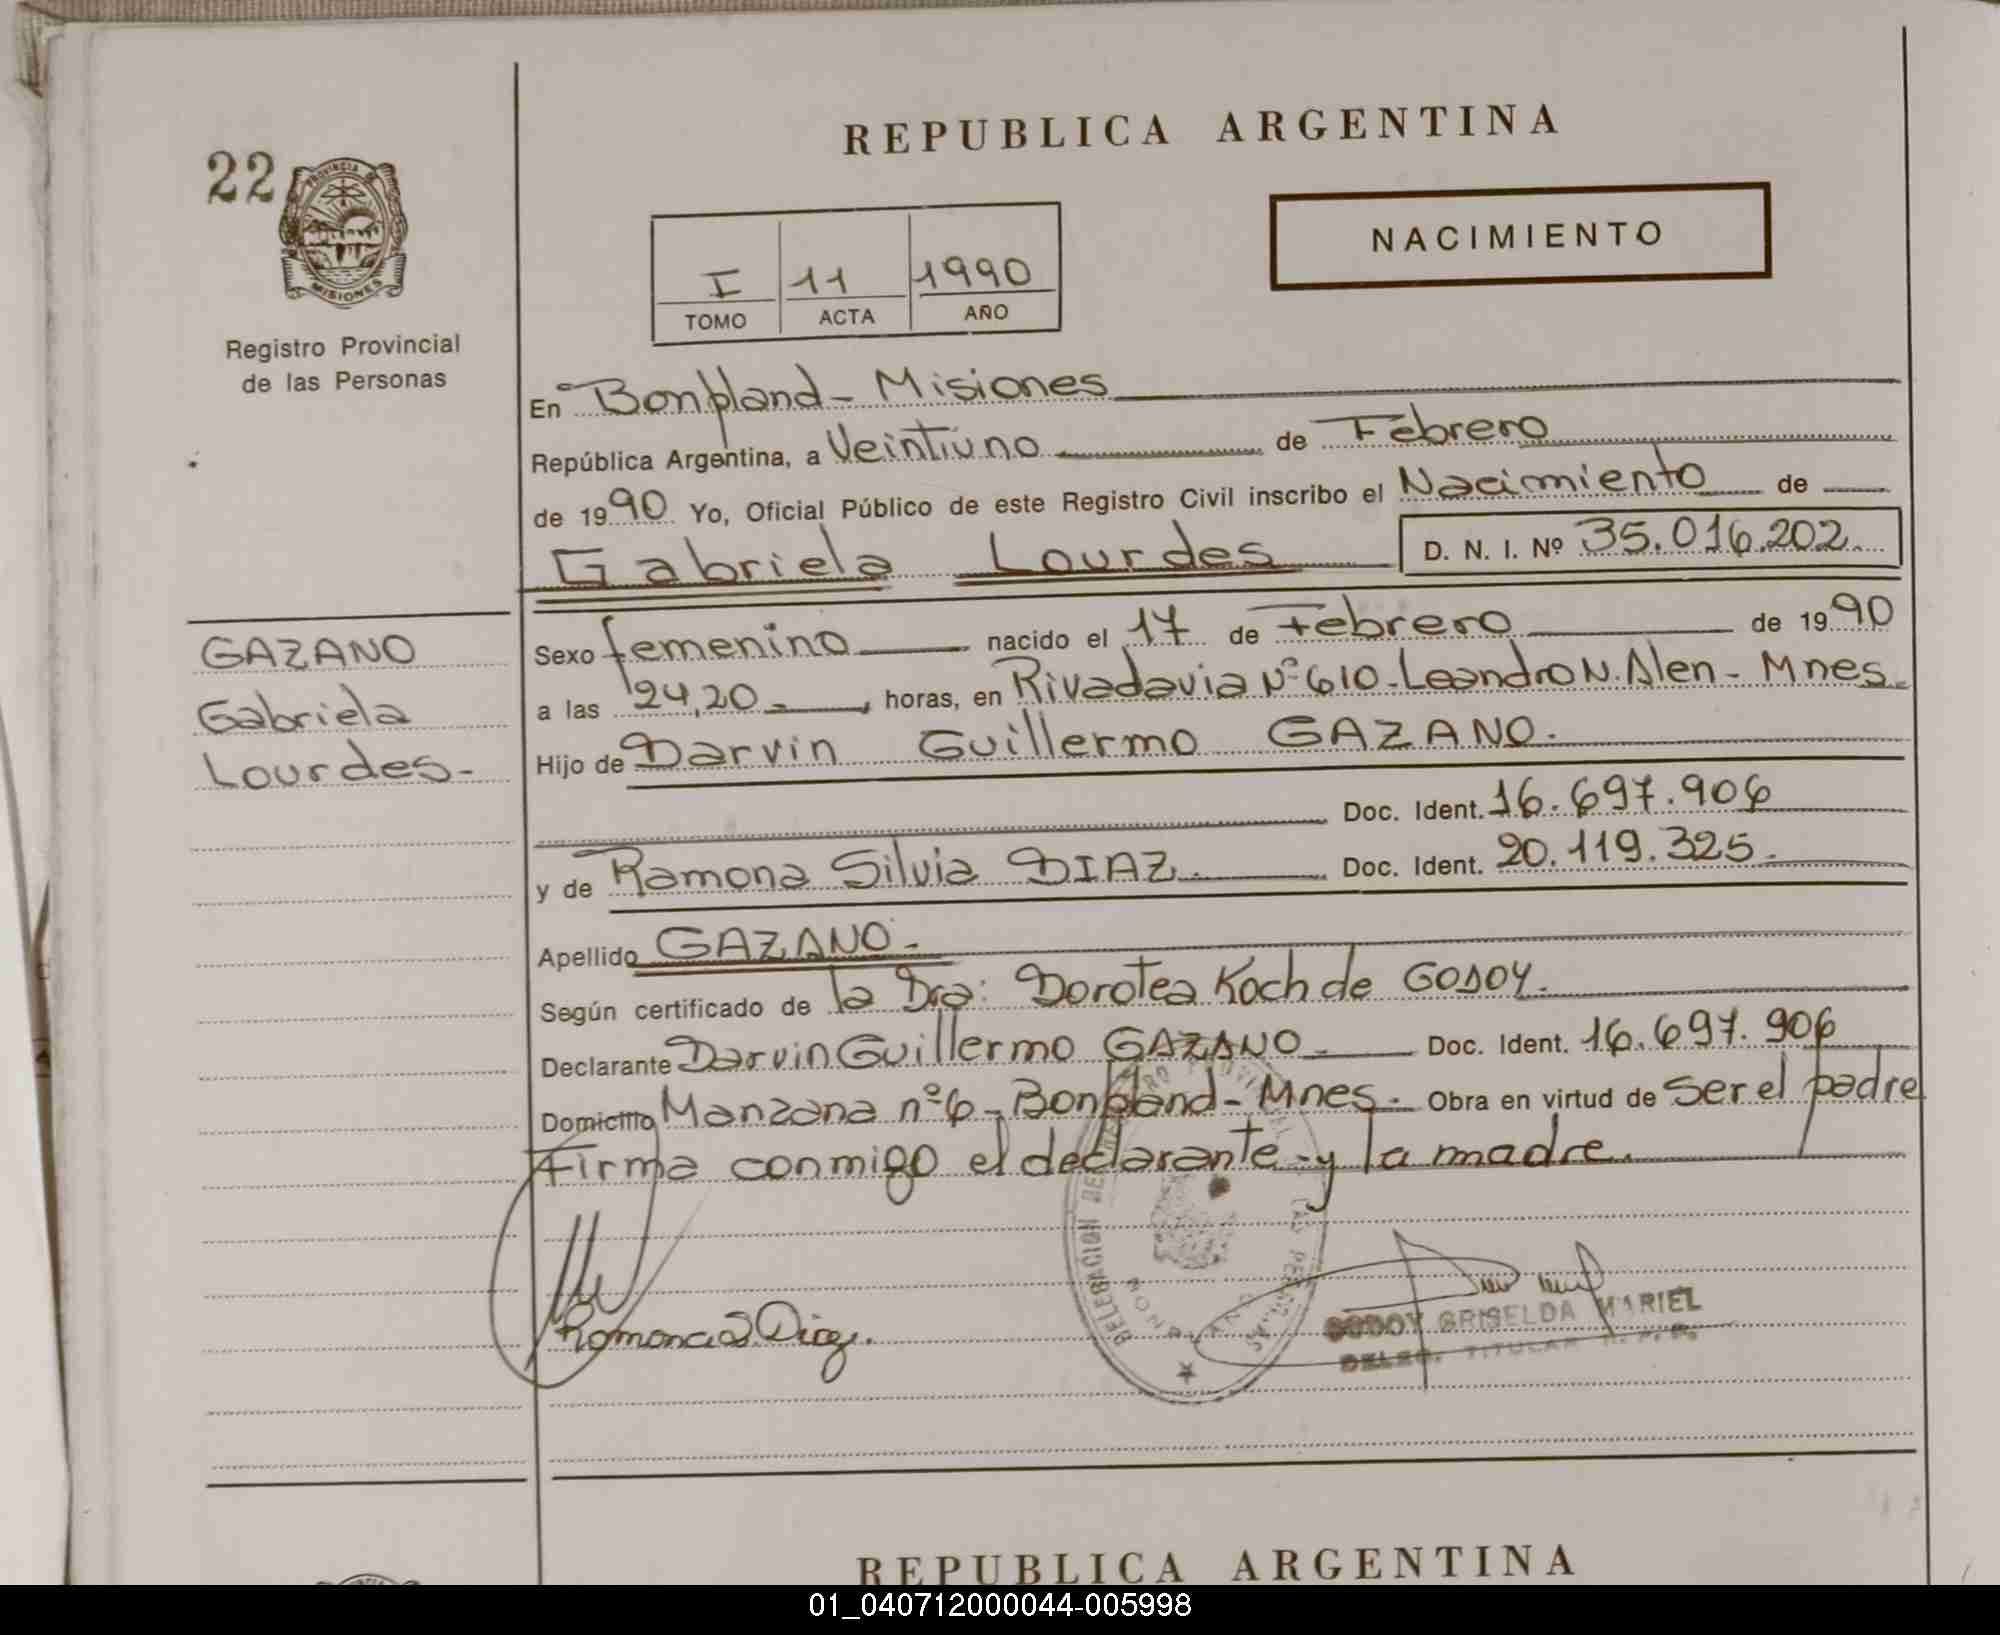 REPUBLICA ARGENTINA
22
PROVINCIA DE
MISIONES
Registro Provincial
de las Personas
I 11 1990
TOMO ACTA AÑO
NACIMIENTO
En Bonpland - Misiones
República Argentina, a Veintiuno de Febrero
de 1990 Yo, Oficial Público de este Registro Civil inscribo el Nacimiento de
Gabriela Lourdes D. N. I. Nº 35.016.202.
GAZANO
Gabriela
Lourdes-
Sexo femenino nacido el 17 de Febrero de 1990
a las 24,20 - horas, en Rivadavia Nº 610 - Leandro N. Alen - Mnes.
Hijo de Darvin Guillermo GAZANO.
Doc. Ident. 16.697.906
y de Ramona Silvia DIAZ. Doc. Ident. 20.119.325.
Apellido GAZANO -
Según certificado de la Dra: Dorotea Koch de GODOY.
Declarante Darvin Guillermo GAZANO - Doc. Ident. 16.697.906
Domicilio Manzana nº 6 - Bonpland - Mnes. Obra en virtud de Ser el padre
Firma conmigo el declarante y la madre.
DELEGACION
Ramona S. Diaz.
GODOY GRISELDA MARIEL
DELEG. TITULAR R. P. P.
REPUBLICA ARGENTINA
01_040712000044-005998